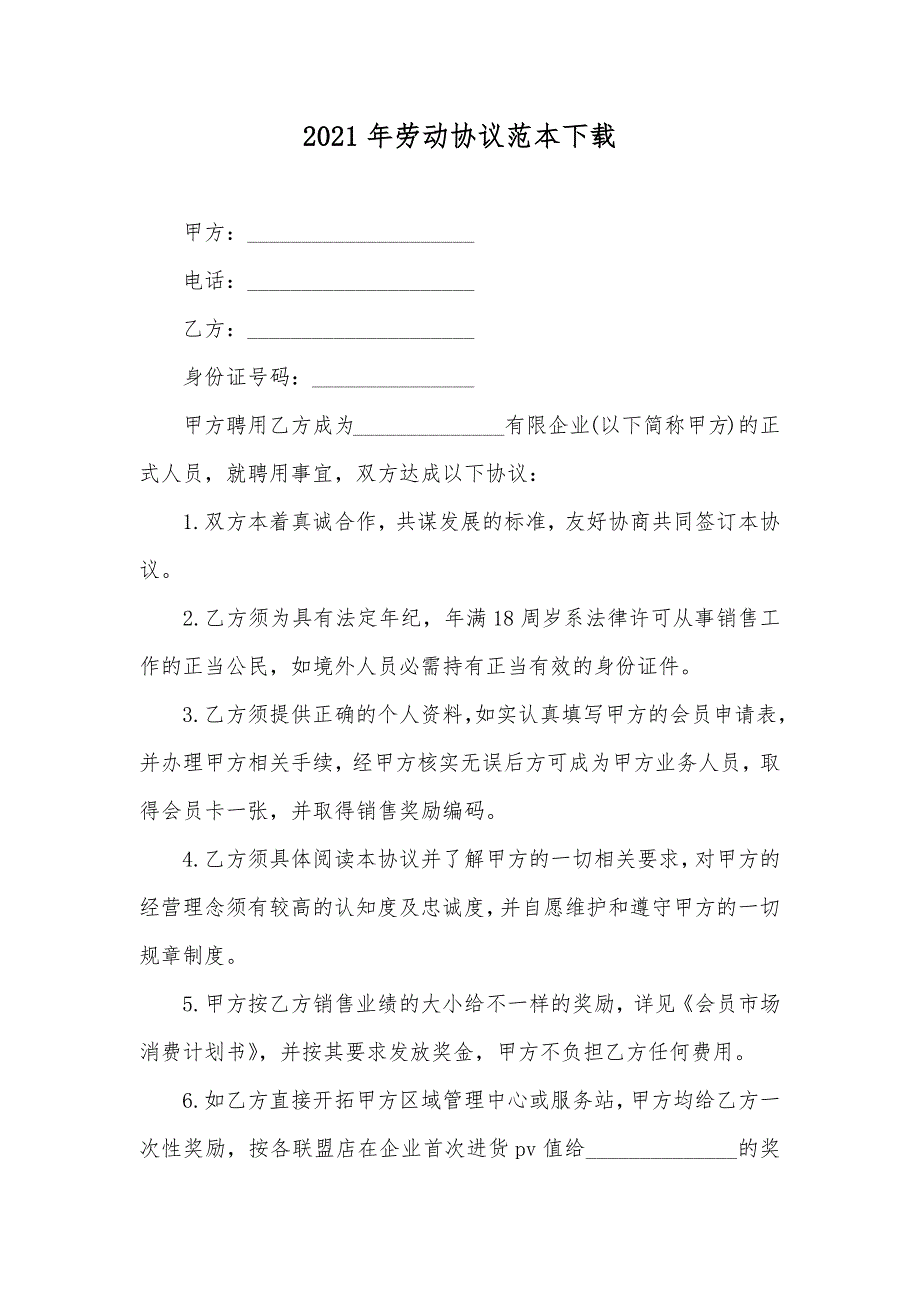 2021年劳动协议范本下载
甲方：_____________________
电话：_____________________
乙方：_____________________
身份证号码：_______________
甲方聘用乙方成为______________有限企业(以下简称甲方)的正
式人员，就聘用事宜，双方达成以下协议：
1.双方本着真诚合作，共谋发展的标准，友好协商共同签订本协
议。
2.乙方须为具有法定年纪，年满18周岁系法律许可从事销售工
作的正当公民，如境外人员必需持有正当有效的身份证件。
3.乙方须提供正确的个人资料，如实认真填写甲方的会员申请表，
并办理甲方相关手续，经甲方核实无误后方可成为甲方业务人员，取
得会员卡一张，并取得销售奖励编码。
4.乙方须具体阅读本协议并了解甲方的一切相关要求，对甲方的
经营理念须有较高的认知度及忠诚度，并自愿维护和遵守甲方的一切
规章制度。
5.甲方按乙方销售业绩的大小给不一样的奖励，详见《会员市场
消费计划书》，并按其要求发放奖金，甲方不负担乙方任何费用。
6.如乙方直接开拓甲方区域管理中心或服务站，甲方均给乙方一
次性奖励，按各联盟店在企业首次进货pv值给______________的奖